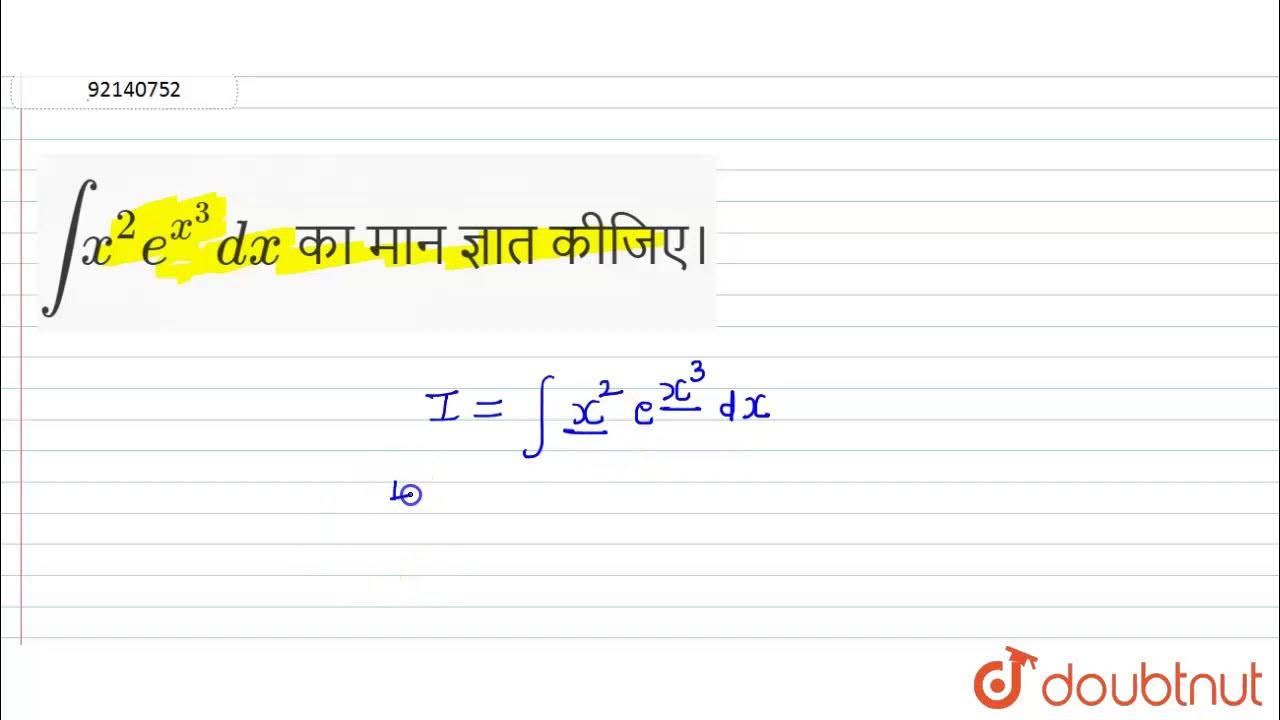 92140752
∫x²eˣ³dx का मान ज्ञात कीजिए।
I = ∫ x² eˣ³ dx
doubtnut